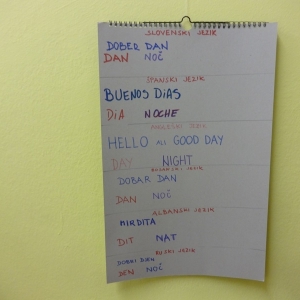 SLOVENSKI JEZIK
DOBER DAN
DAN NOČ
ŠPANSKI JEZIK
BUENOS DiAS
DiA NOCHE
ANGLEŠKI JEZIK
HELLO ALI GOOD DAY
DAY NIGHT
JEZIK
DOBAR DAN
DAN NOČ
ALBANSKI JEZIK
MIRDITA
DIT NAT
RUSKI JEZIK
DEN NOČ